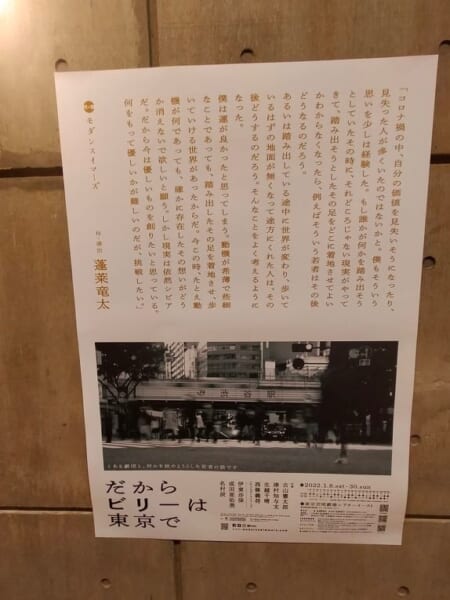 「コロナ禍の中、自分の価値を見失いそうになったり、
見失った人が多くいたのではないかと。僕もそういう
思いを少しは経験した。もし誰かが何かを踏み出そう
としていたその時に、それどころじゃない現実がやって
きて、踏み出そうとしたその足をどこに着地させてよい
かわからなくなったら、例えばそういう若者はその後
どうなるのだろう。
あるいは踏み出している途中に世界が変わり、歩いて
いるはずの地面が無くなって途方にくれた人は、その
後どうするのだろう。そんなことをよく考えるように
なった。
僕は運が良かったと思ってしまう。動機が希薄で些細
なことであっても、踏み出したその足を着地させ、歩
いていける世界があったからだ。今この時、たとえ動
機が何であっても、確かに存在したその想いがどう
か消えないで欲しいと願う。しかし現実は依然シビア
だ。だから今は優しいものを創りたいと思っている。
何をもって優しいかが難しいのだが、挑戦したい。」
モダンスイマーズ
作・演出
蓬莱竜太
渋谷駅
とある劇団と、何かを始めようとした若者の話です
だから
ビリーは
東京で
古山憲太郎
津村知与支
生越千晴
西條義将
伊東沙保
成田亜佑美
名村辰
2022.1.8.sat-30.sun